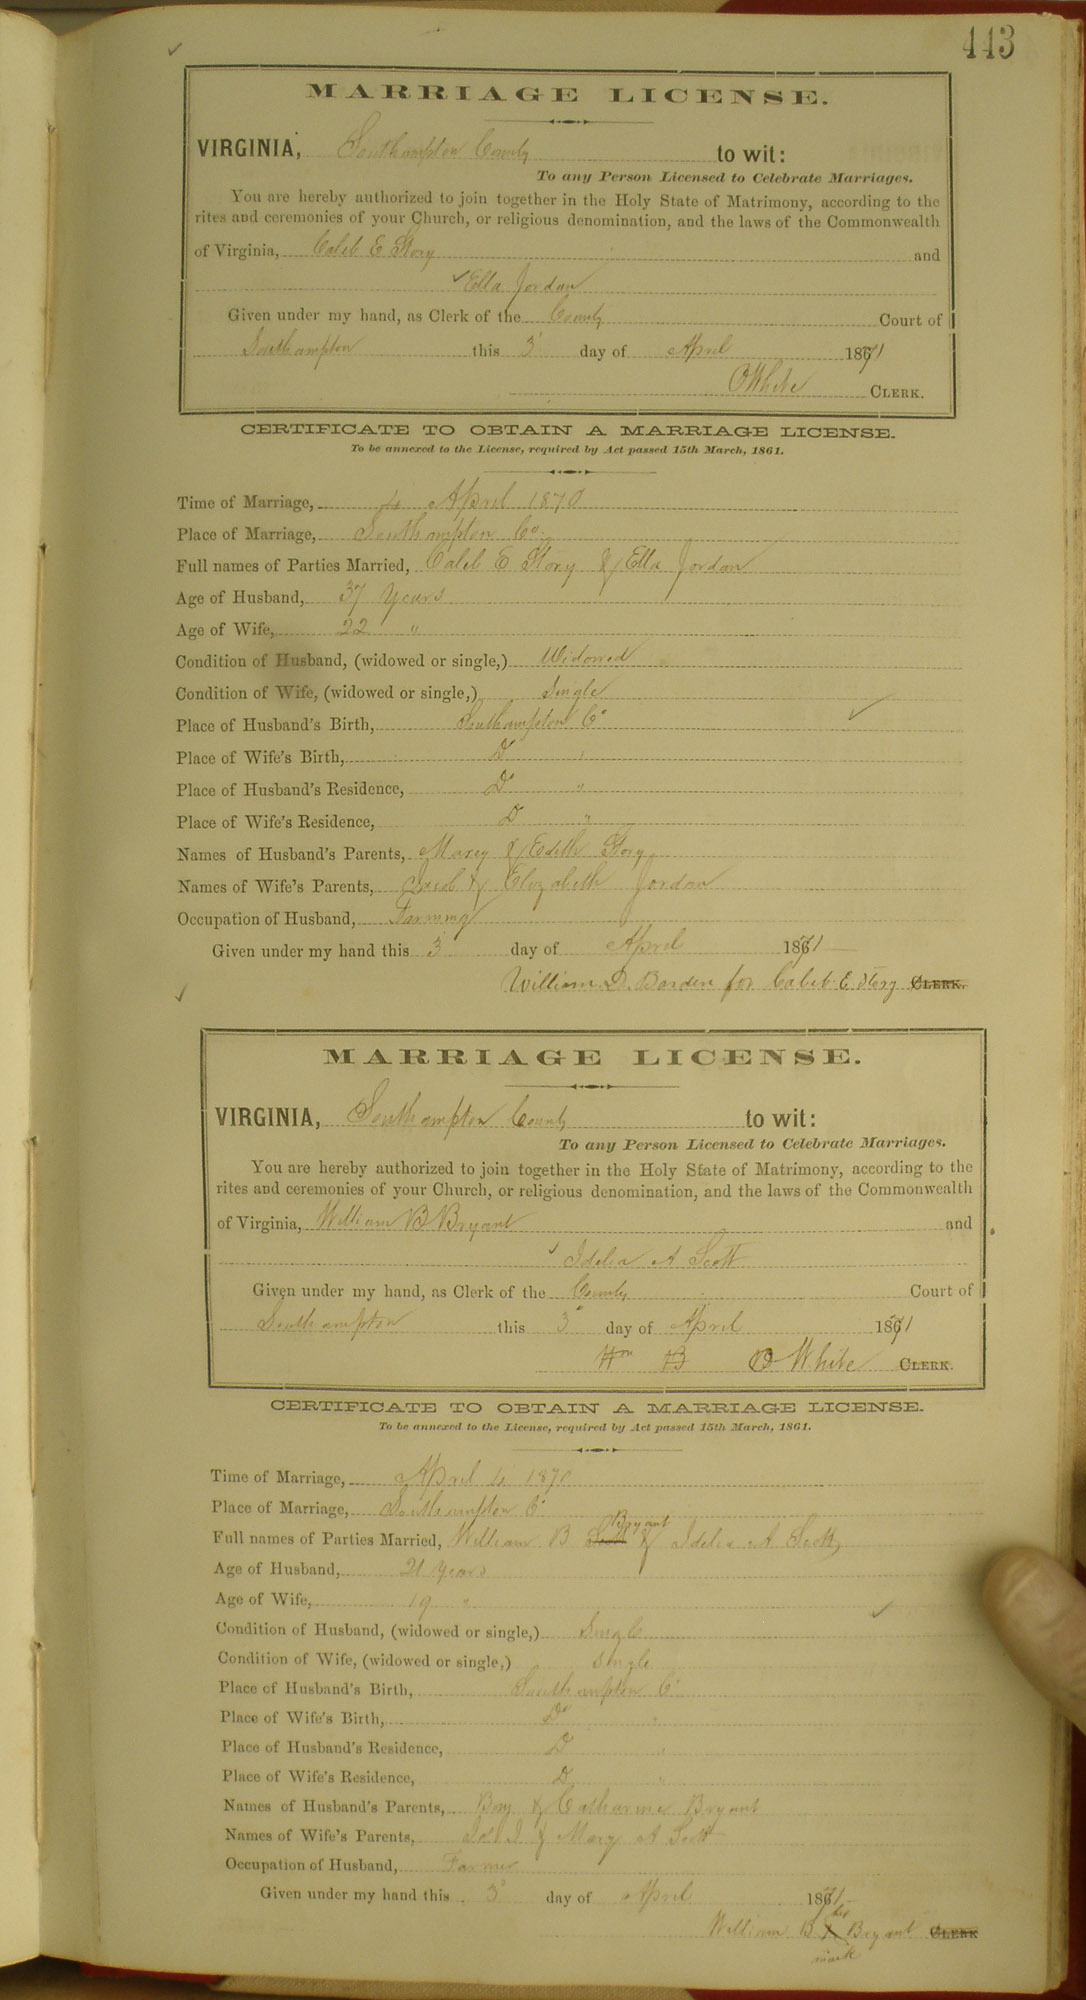 443
MARRIAGE LICENSE.
VIRGINIA, Southampton County to wit:
To any Person Licensed to Celebrate Marriages.
You are hereby authorized to join together in the Holy State of Matrimony, according to the
rites and ceremonies of your Church, or religious denomination, and the laws of the Commonwealth
of Virginia, Caleb E Story and
Ella Jordan
Given under my hand, as Clerk of the County Court of
Southampton this 3 day of April 1871
O White CLERK.
CERTIFICATE TO OBTAIN A MARRIAGE LICENSE.
To be annexed to the License, required by Act passed 15th March, 1861.
Time of Marriage, 4 April 1870
Place of Marriage, Southampton Co.
Full names of Parties Married, Caleb E Story & Ella Jordan
Age of Husband, 37 Years
Age of Wife, 22 "
Condition of Husband, (widowed or single,) Widowed
Condition of Wife, (widowed or single,) Single
Place of Husband's Birth, Southampton Co
Place of Wife's Birth, Do "
Place of Husband's Residence, Do "
Place of Wife's Residence, D "
Names of Husband's Parents, & Edith Story
Names of Wife's Parents, Jacob & Elizabeth Jordan
Occupation of Husband, Farming
Given under my hand this 3 day of April 1871
William D. Barden for Caleb E Story CLERK.
MARRIAGE LICENSE.
VIRGINIA, Southampton County to wit:
To any Person Licensed to Celebrate Marriages.
You are hereby authorized to join together in the Holy State of Matrimony, according to the
rites and ceremonies of your Church, or religious denomination, and the laws of the Commonwealth
of Virginia, William B Bryant and
Idelia A Scott
Given under my hand, as Clerk of the County Court of
Southampton this 3 day of April 1871
Wm B O White CLERK.
CERTIFICATE TO OBTAIN A MARRIAGE LICENSE.
To be annexed to the License, required by Act passed 15th March, 1861.
Time of Marriage, April 4 1870
Place of Marriage, Southampton Co
Bryant
Full names of Parties Married, William B Scott & Idelia A Scott
Age of Husband, 21 years
Age of Wife, 19 "
Condition of Husband, (widowed or single,) Single
Condition of Wife, (widowed or single,) Single
Place of Husband's Birth, Southampton Co
Place of Wife's Birth, Do "
Place of Husband's Residence, D "
Place of Wife's Residence, D "
Names of Husband's Parents, & Catharine Bryant
Names of Wife's Parents, & Mary A Scott
Occupation of Husband, Farmer
Given under my hand this 3 day of April 1871
his
William B X Bryant CLERK
mark